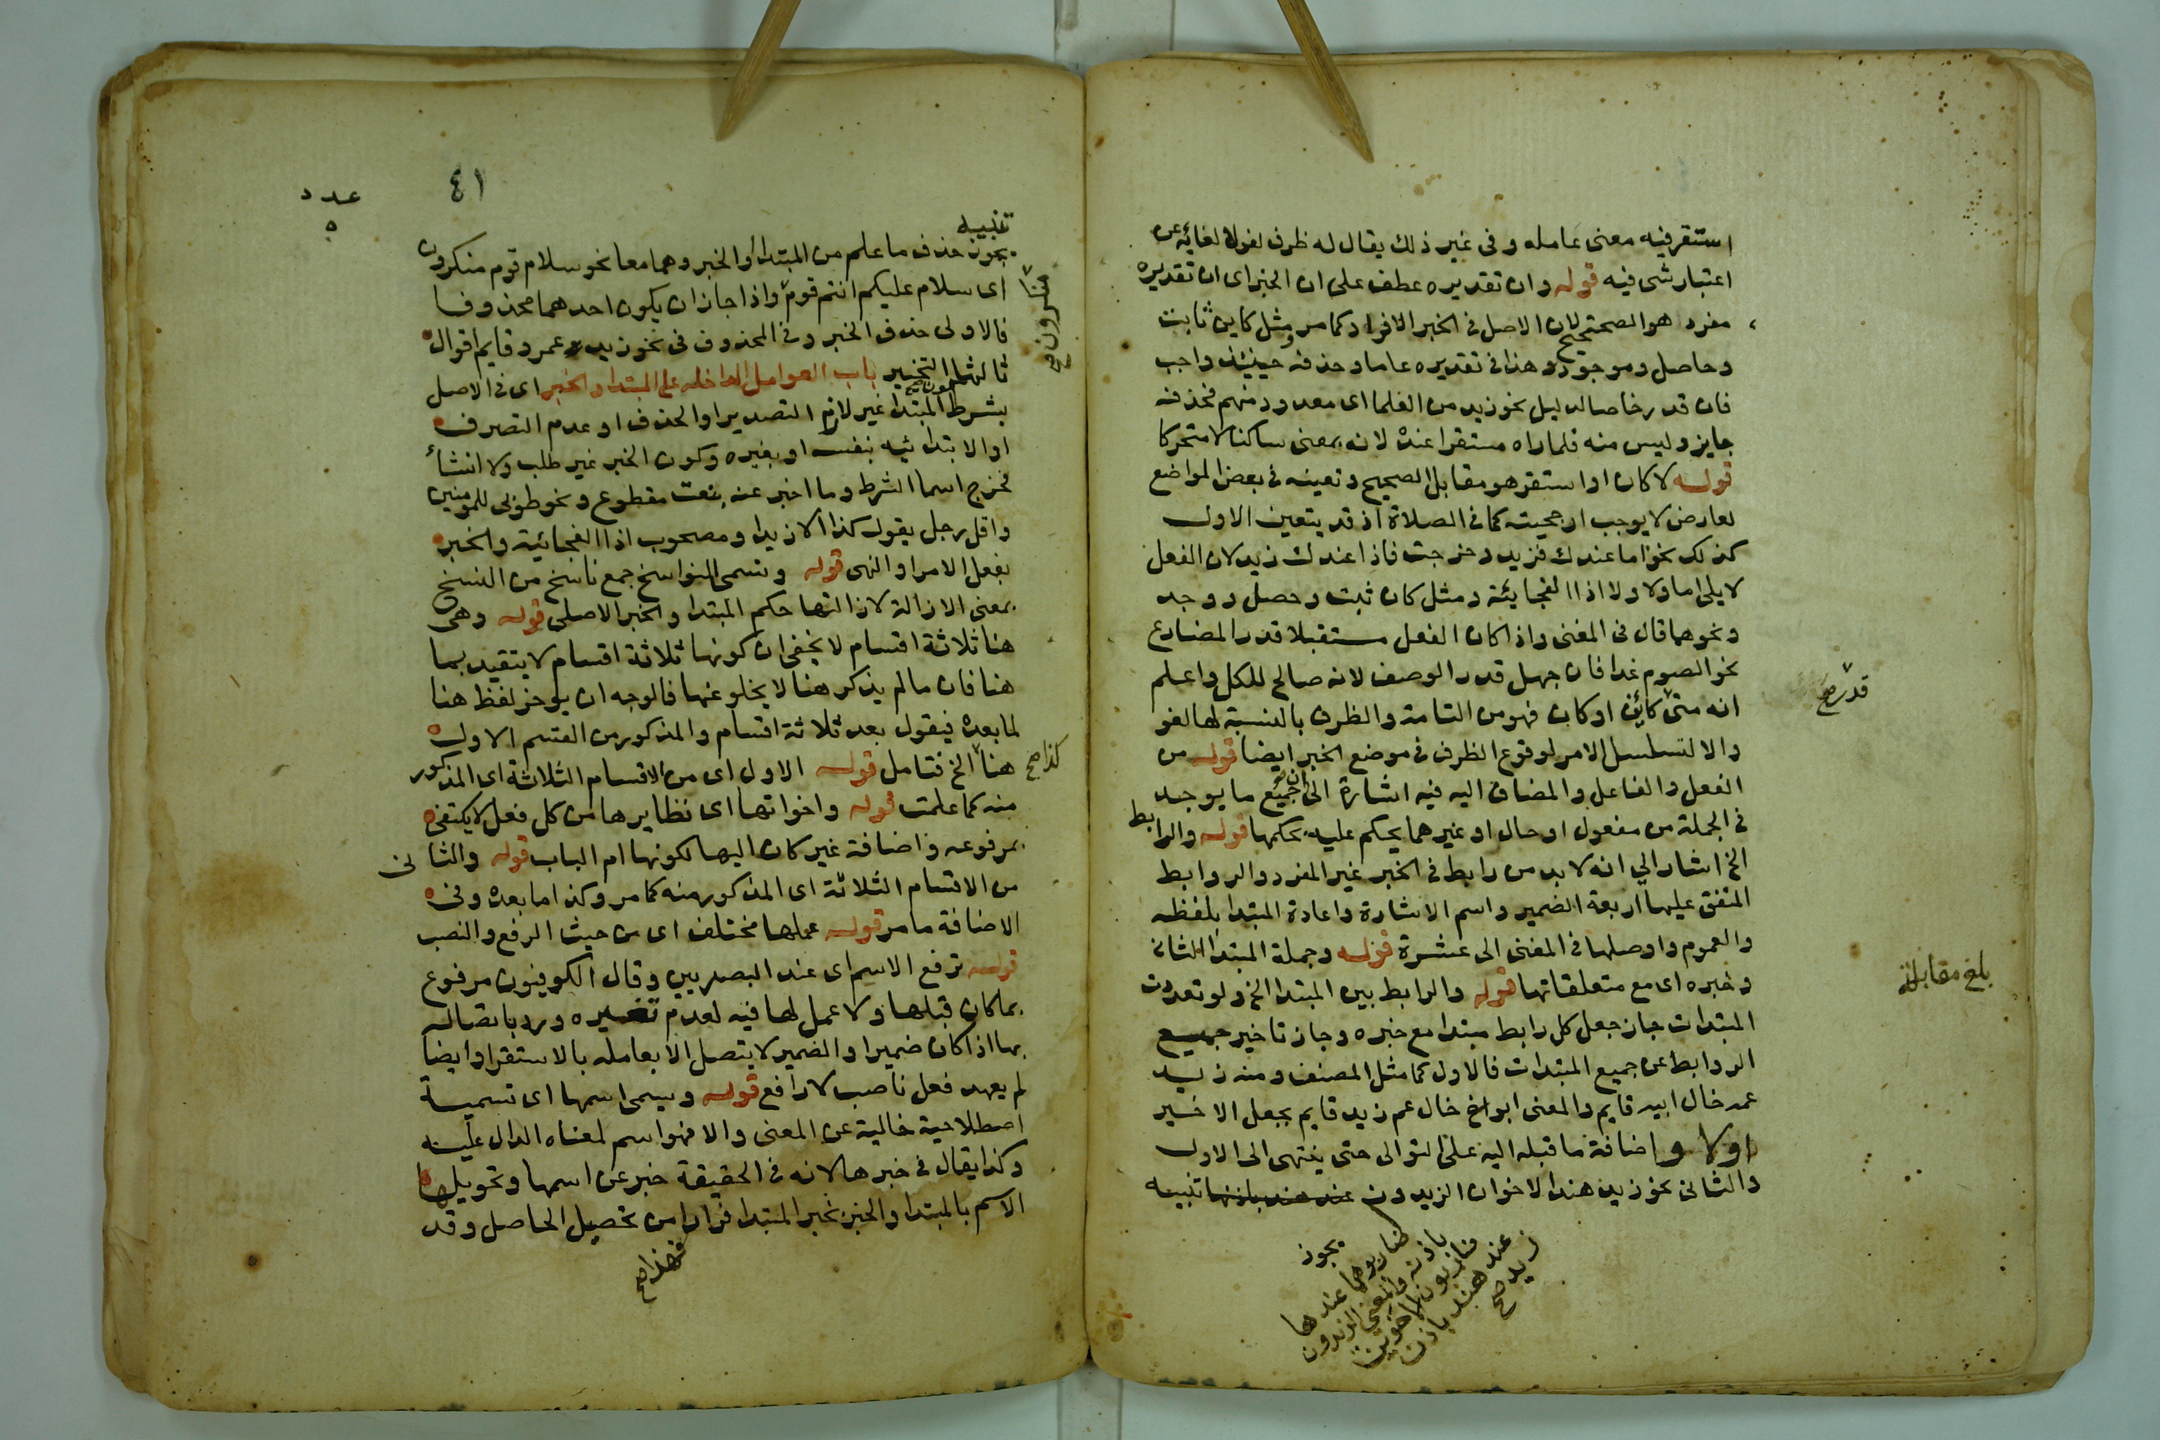 استقر فيه معنى عامله وفى غير ذلك يقال له ظرف لغو لالغائه عن
اعتبار شى فيه قوله وان تقديره عطف على ان الخبر اى ان تقديره
مفرد هو الصحيح لان الاصل فى الخبر الافراد كما مر ومثل كاين ثابت
وحاصل وموجود وهذا فى تقديره عاما وحذفه حينئذ واجب
فان قدر خاصا لدليل نحو زيد من العلما اى معدود منهم فحذفه
جايز وليس منه فلما راه مستقرا عنده لانه بمعنى ساكنا لا متحركا
قوله لا كان او استقر هو مقابل الصحيح وتعينه فى بعض المواضع
لعارض لا يوجب ارجحيته كما فى الصلاة اذ قد يتعين الاول
كذلك نحو اما عندك فزيد وخرجت فاذا عندك زيد لان الفعل
لا يلى اما ولا ولا اذا الفجايئة ومثل كان ثبت وحصل ووجد
ونحوهما قال فى المغنى واذا كان الفعل مستقبلا قدر المضارع
نحو الصوم غدا فان جهل قدر الوصف لانه صالح للكل واعلم
قدر صح
انه متى كائن او كان فهو من التامة والظرف بالنسبة لها لغو
والا لتسلسل الامر لوقوع الظرف فى موضع الخبر ايضا قوله من
الفعل والفاعل والمضاف اليه فيه اشارة الى ان جميع ما يوجد
فى الجملة من مفعول او حال او غيرهما يحكم عليه بحكمها قوله والرابط
الخ اشار الى انه لا بد من رابط فى الخبر غير المفرد والروابط
المتفق عليها اربعة الضمير واسم الاشارة واعادة المبتدا بلفظه
والعموم واوصلها فى المغنى الى عشرة قوله وجملة المبتدا الثانى
بلغ مقابلة
وخبره اى مع متعلقاتها قوله والرابط بين المبتدا الخ ولو تعددت
المبتدات جاز جعل كل رابط مبتدا مع خبره وجاز تاخير جميع
الروابط عن جميع المبتدات فالاول كما مثل المصنف ومنه زيد
عمه خال ابيه قايم والمعنى ابو اخ خال عم زيد قايم بجعل الاخير
اولا واضافة ما قبله اليه على التوالى حتى ينتهى الى الاول
والثانى نحو زيد هند الاخوان الزيدون عند هند باذنها تنبيه
يجوز
ضاربوهما عندها
باذنه والمعنى الزيدون
ضاربون الاخوين
عند هند باذن
زيد صح
٤١
عدد
٥
تنبيه
يجوز حذف ما علم من المبتدا والخبر وهما معا نحو سلام قوم منكرون
اى سلام عليكم انتم قوم واذا جاز ان يكون احدهما محذوفا
منكرون صح
فالاولى حذف الخبر وفى المحذوف فى نحو زيد وعمرو قايم اقوال
ثالثها التخيير باب العوامل الداخله على المبتدا والخبر اى فى الاصل
بشرط كون المبتدا غير لازم التصدير او الحذف او عدم التصرف
او الابتدائيه بنفسه او بغيره وكون الخبر غير طلب ولا انشاء
فخرج اسما الشرط وما اخبر عنه بنعت مقطوع ونحو طوبى للمومنين
واقل رجل يقول كذا الا زيدا ومصحوب اذا الفجائية والخبر
بفعل الامر او النهى قوله وتسمى النواسخ جمع ناسخ من النسخ
بمعنى الازالة لازالتها حكم المبتدا والخبر الاصلى قوله وهى
هنا ثلاثة اقسام لا يخفى ان كونها ثلاثة اقسام لا يتقيد بما
هنا فان ما لم يذكر هنا لا يخلو عنها فالوجه ان يوخر لفظ هنا
لما بعده فيقول بعد ثلاثة اقسام والمذكور من القسم الاول
هنا الخ فتامل قوله الاول اى من الاقسام الثلاثة اى المذكور
كذا صح
منه كما علمت قوله واخواتها اى نظايرها من كل فعل لا يكتفى
بمرفوعه واضافة غير كان اليها لكونها ام الباب قوله والثانى
من الاقسام الثلاثة اى المذكور منه كما مر وكذا ما بعده وفى
الاضافة ما مر قوله عملها مختلف اى من حيث الرفع والنصب
قوله ترفع الاسم اى عند البصريين وقال الكوفيون مرفوع
بما كان قبلها ولا عمل لها فيه لعدم تغييره ورد باتصاله
بها اذا كان ضميرا والضمير لا يتصل الا بعامله بالاستقرا وايضا
لم يعهد فعل ناصب لا رافع قوله ويسمى اسمها اى تسمية
اصطلاحية خالية عن المعنى والا فهو اسم لمعناه الدال عليه
وكذا يقال فى خبرها لانه فى الحقيقة خبر عن اسمها وتحويلها
الاسم بالمبتدا والخبر بخبر المبتدا فرارا من تحصيل الحاصل وقد